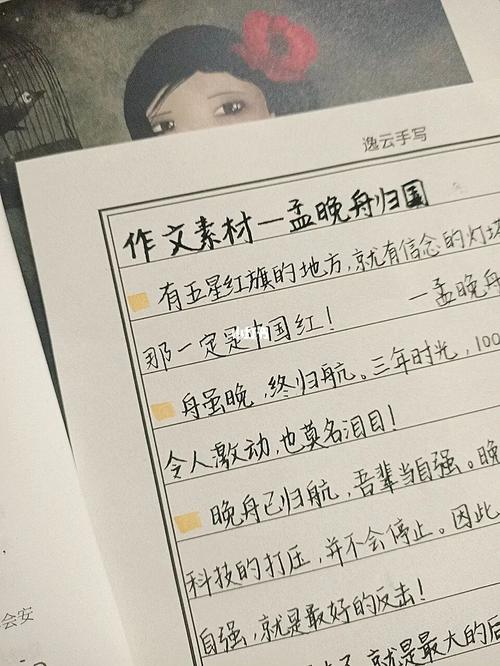 逸云手写
作文素材—孟晚舟归国
有五星红旗的地方,就有信念的灯塔
那一定是中国红! —孟晚舟
舟虽晚,终归航。三年时光,100
令人激动,也莫名泪目!
晚舟已归航,吾辈当自强。晚
科技的打压,并不会停止。因此
自强,就是最好的反击!
就是最大的后
会安